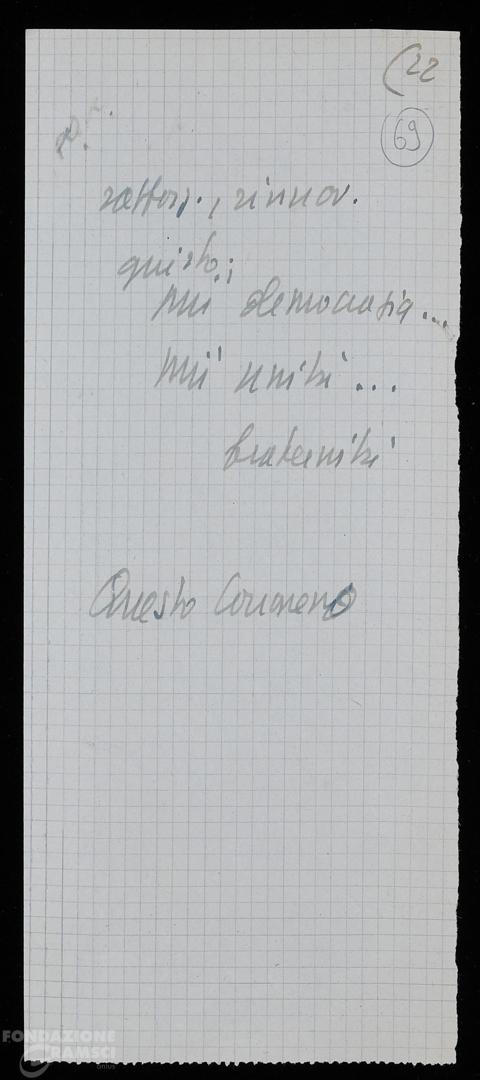 (22
69
rafforz., rinnov.
giusto;
più democrazia...
più unità...
fraternità
Questo Governo
FONDAZIONE
GRAMSCI
onlus